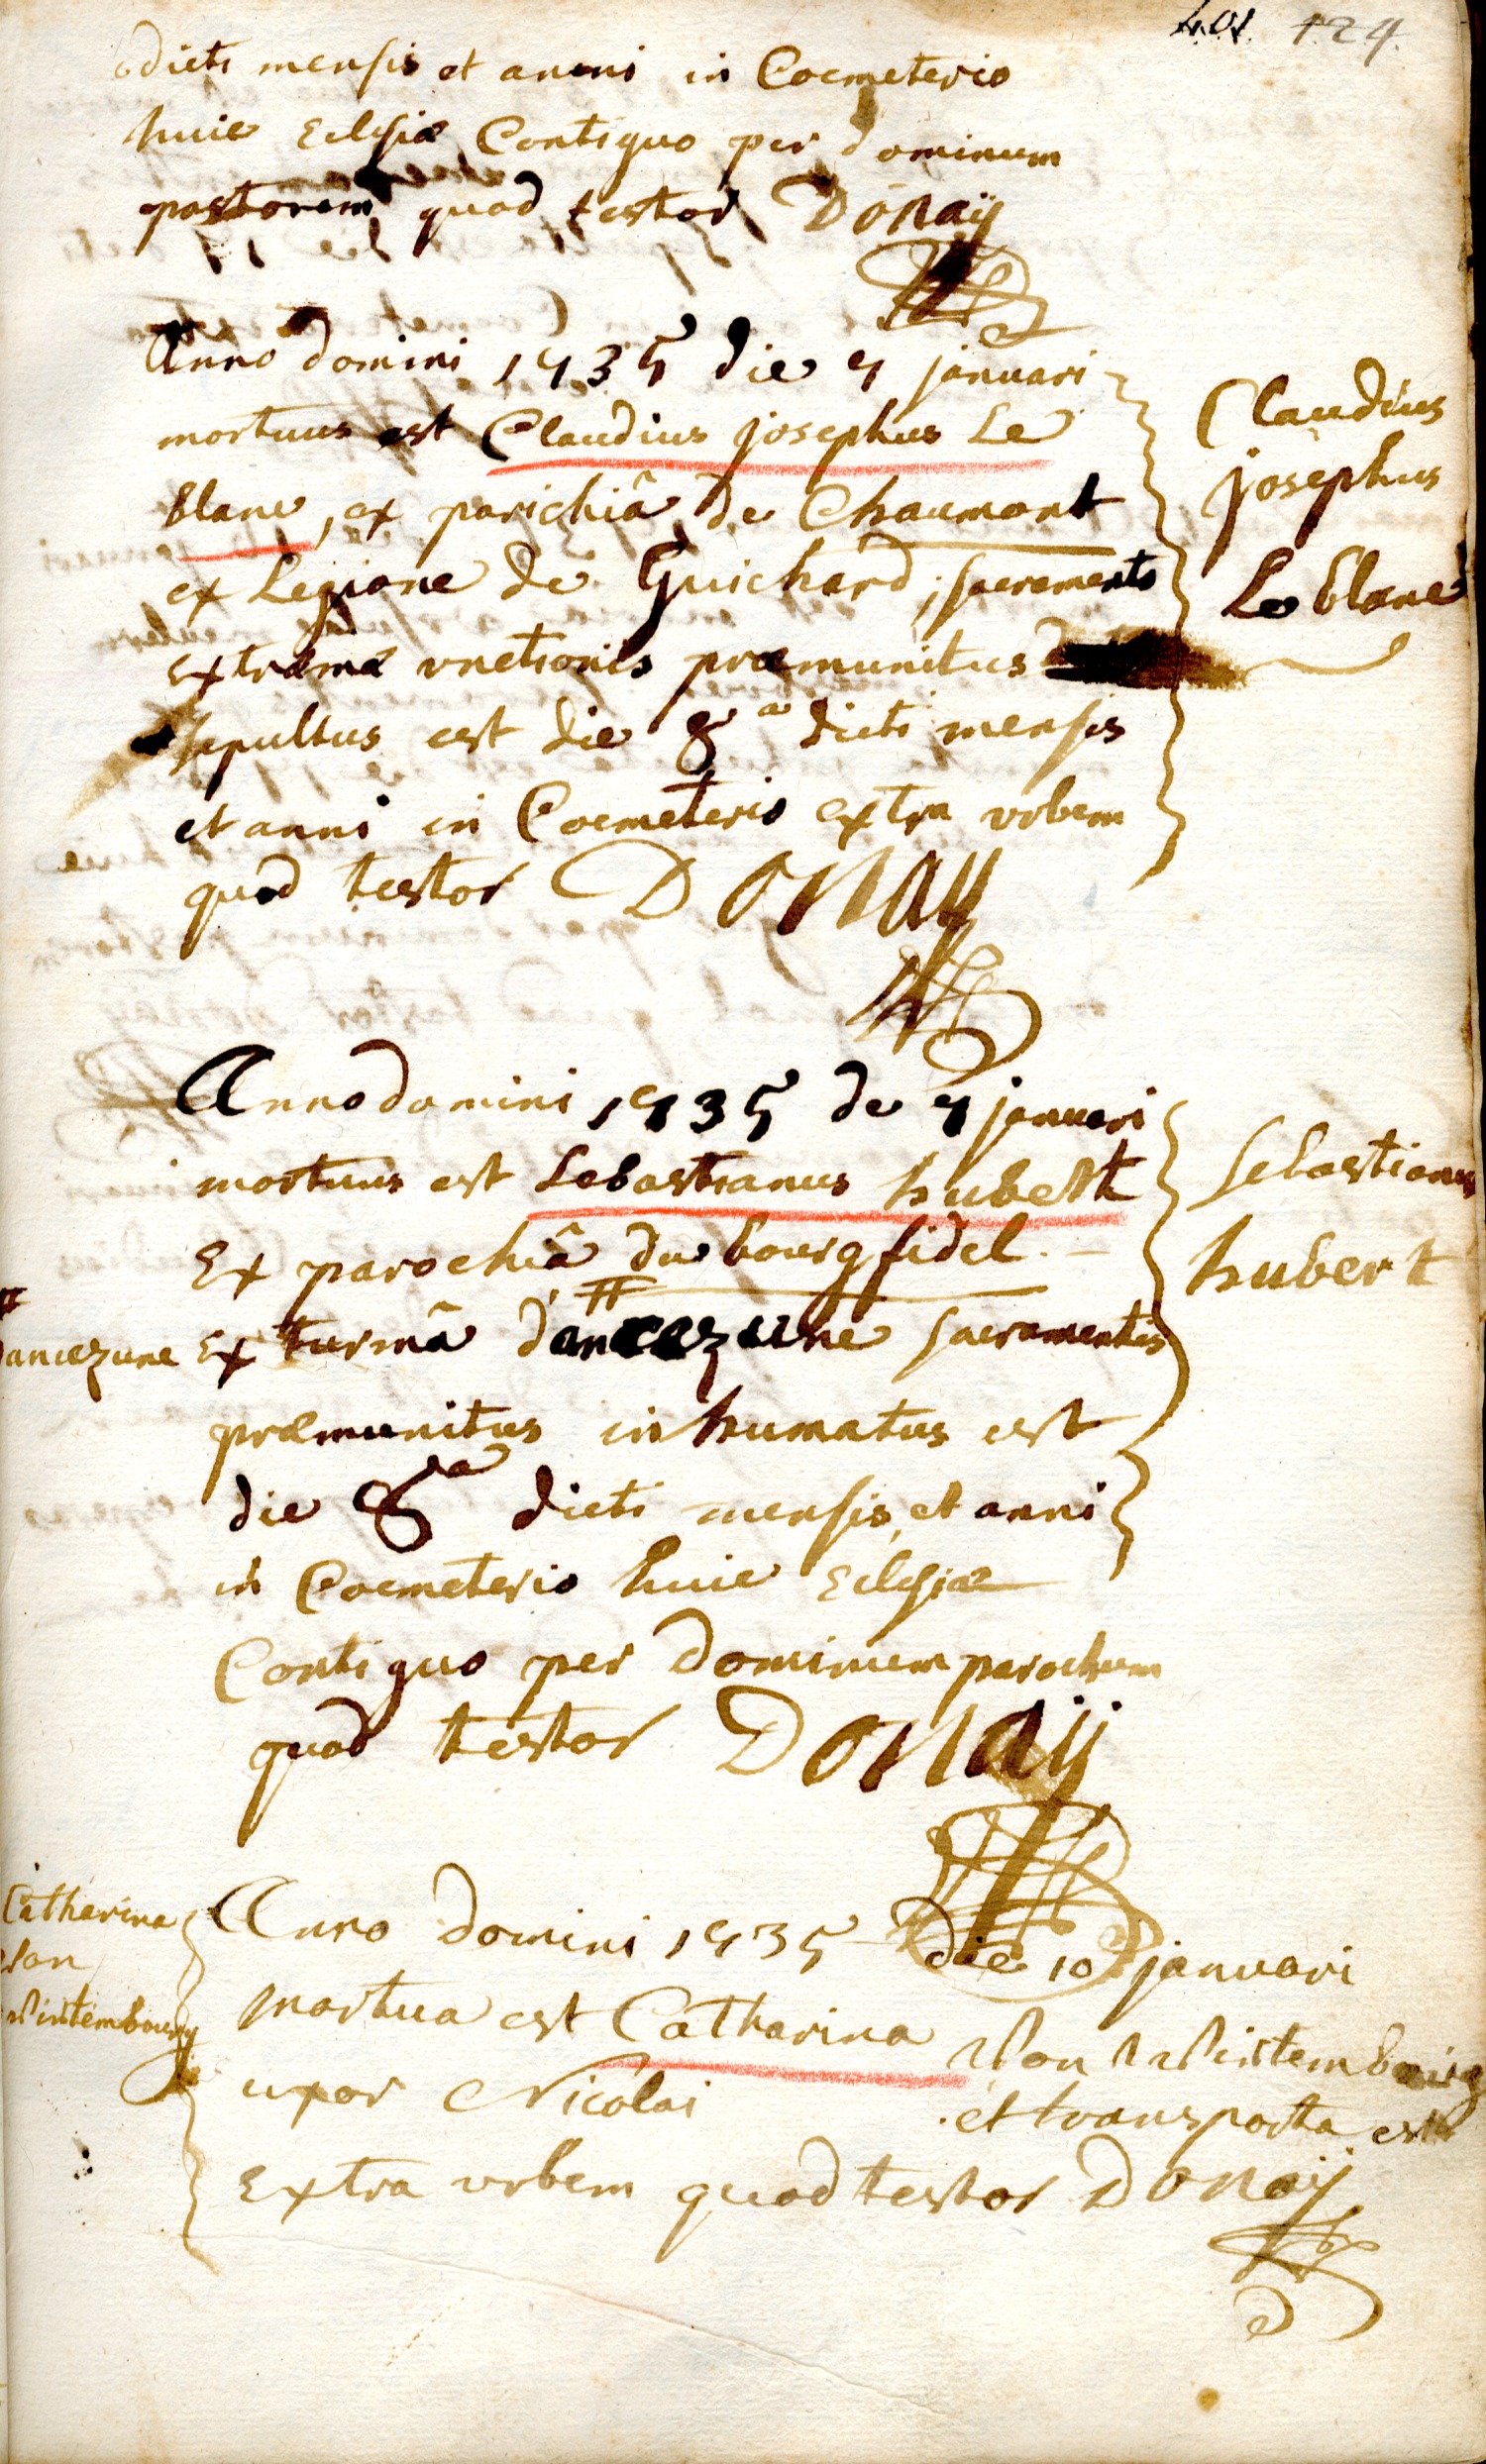 401. 124.
dicti mensis et anni in Coemeterio
huic Eclesiæ Contiguo per dominum
pastorem quod testor Donaÿ
Anno domini 1735 die 7 januari
mortuus est Claudius josephus Le
blanc, ex parichiâ de Chaumont
ex Legione de Guichard, sacramento
extremæ unctionis præmunitus
sepultus est die 8a dicti mensis
et anni in Coemeterio extra urbem
quod testor Donaÿ
Claudius
josephus
Le blanc
Anno domini 1735 de 7 januari
mortuus est Sebastianus hubert
Ex parochiâ du bourg fidel.
Ex turmâ dancezune sacramentis
præmunitus inhumatus est
die 8a dicti mensis et anni
in Coemeterio huic Eclesiæ
Contiguo per dominum parochum
quod testor Donaÿ
Sebastianus
hubert
ancezune
Anno domini 1735 die 10 januari
mortua est Catharina Von Wirtembourg
uxor Nicolai et transporta est
Extra urbem quod testor Donaÿ
Catharina
Von
Wirtembourg